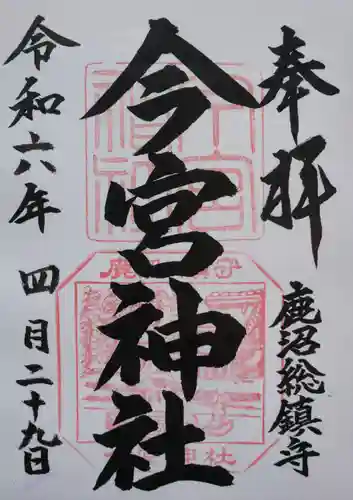 奉拝
鹿沼総鎮守
今宮神社
令和六年
四月二十九日